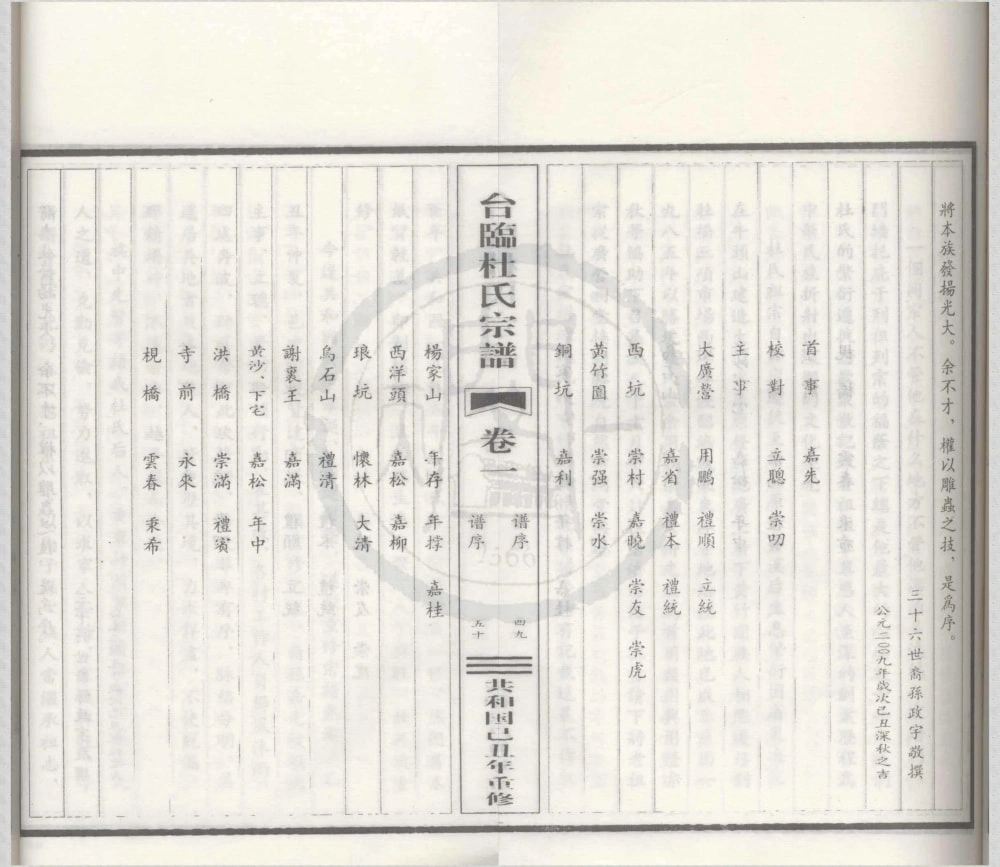 將本族發揚光大。余不才，權以雕蟲之技，是爲序。
三十六世裔孫政宇敬撰
公元二〇〇九年歲次己丑深秋之吉
首事 嘉先
校對 立聰 崇叨
主事
大廣營 用鵬 禮順 立統
嘉省 禮本 禮統
西坑 崇村 嘉曉 崇友 崇虎
黃竹園 崇强 崇水
銅坑 嘉利
台臨杜氏宗譜 卷一
谱序 四九
谱序 五十
共和國己丑年重修
楊家山 年存 年撑 嘉桂
西洋頭 嘉松 嘉柳
琅坑 懷林 大清
烏石山 禮清
謝裏王 嘉滿
黃沙、下宅 嘉松 年中
洪橋 崇滿 禮賓
寺前 永來
梘橋 雲春 秉希
1566